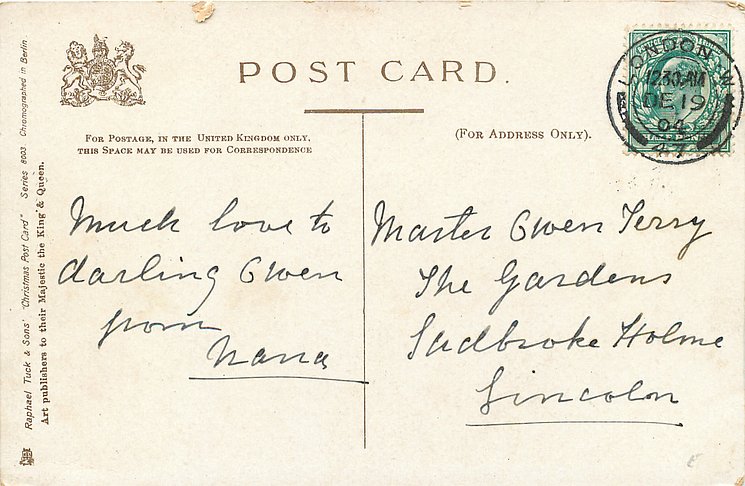 POST CARD.
FOR POSTAGE, IN THE UNITED KINGDOM ONLY,
THIS SPACE MAY BE USED FOR CORRESPONDENCE
(FOR ADDRESS ONLY).
LONDON W
12.30 AM
DE 19
04
47
Much love to
darling Owen
from
Nana
Master Owen Terry
The Gardens
Sudbroke Holme
Lincoln
Raphael Tuck & Sons' "Christmas Post Card" Series 8003 Chromographed in Berlin.
Art publishers to their Majestic the King & Queen.